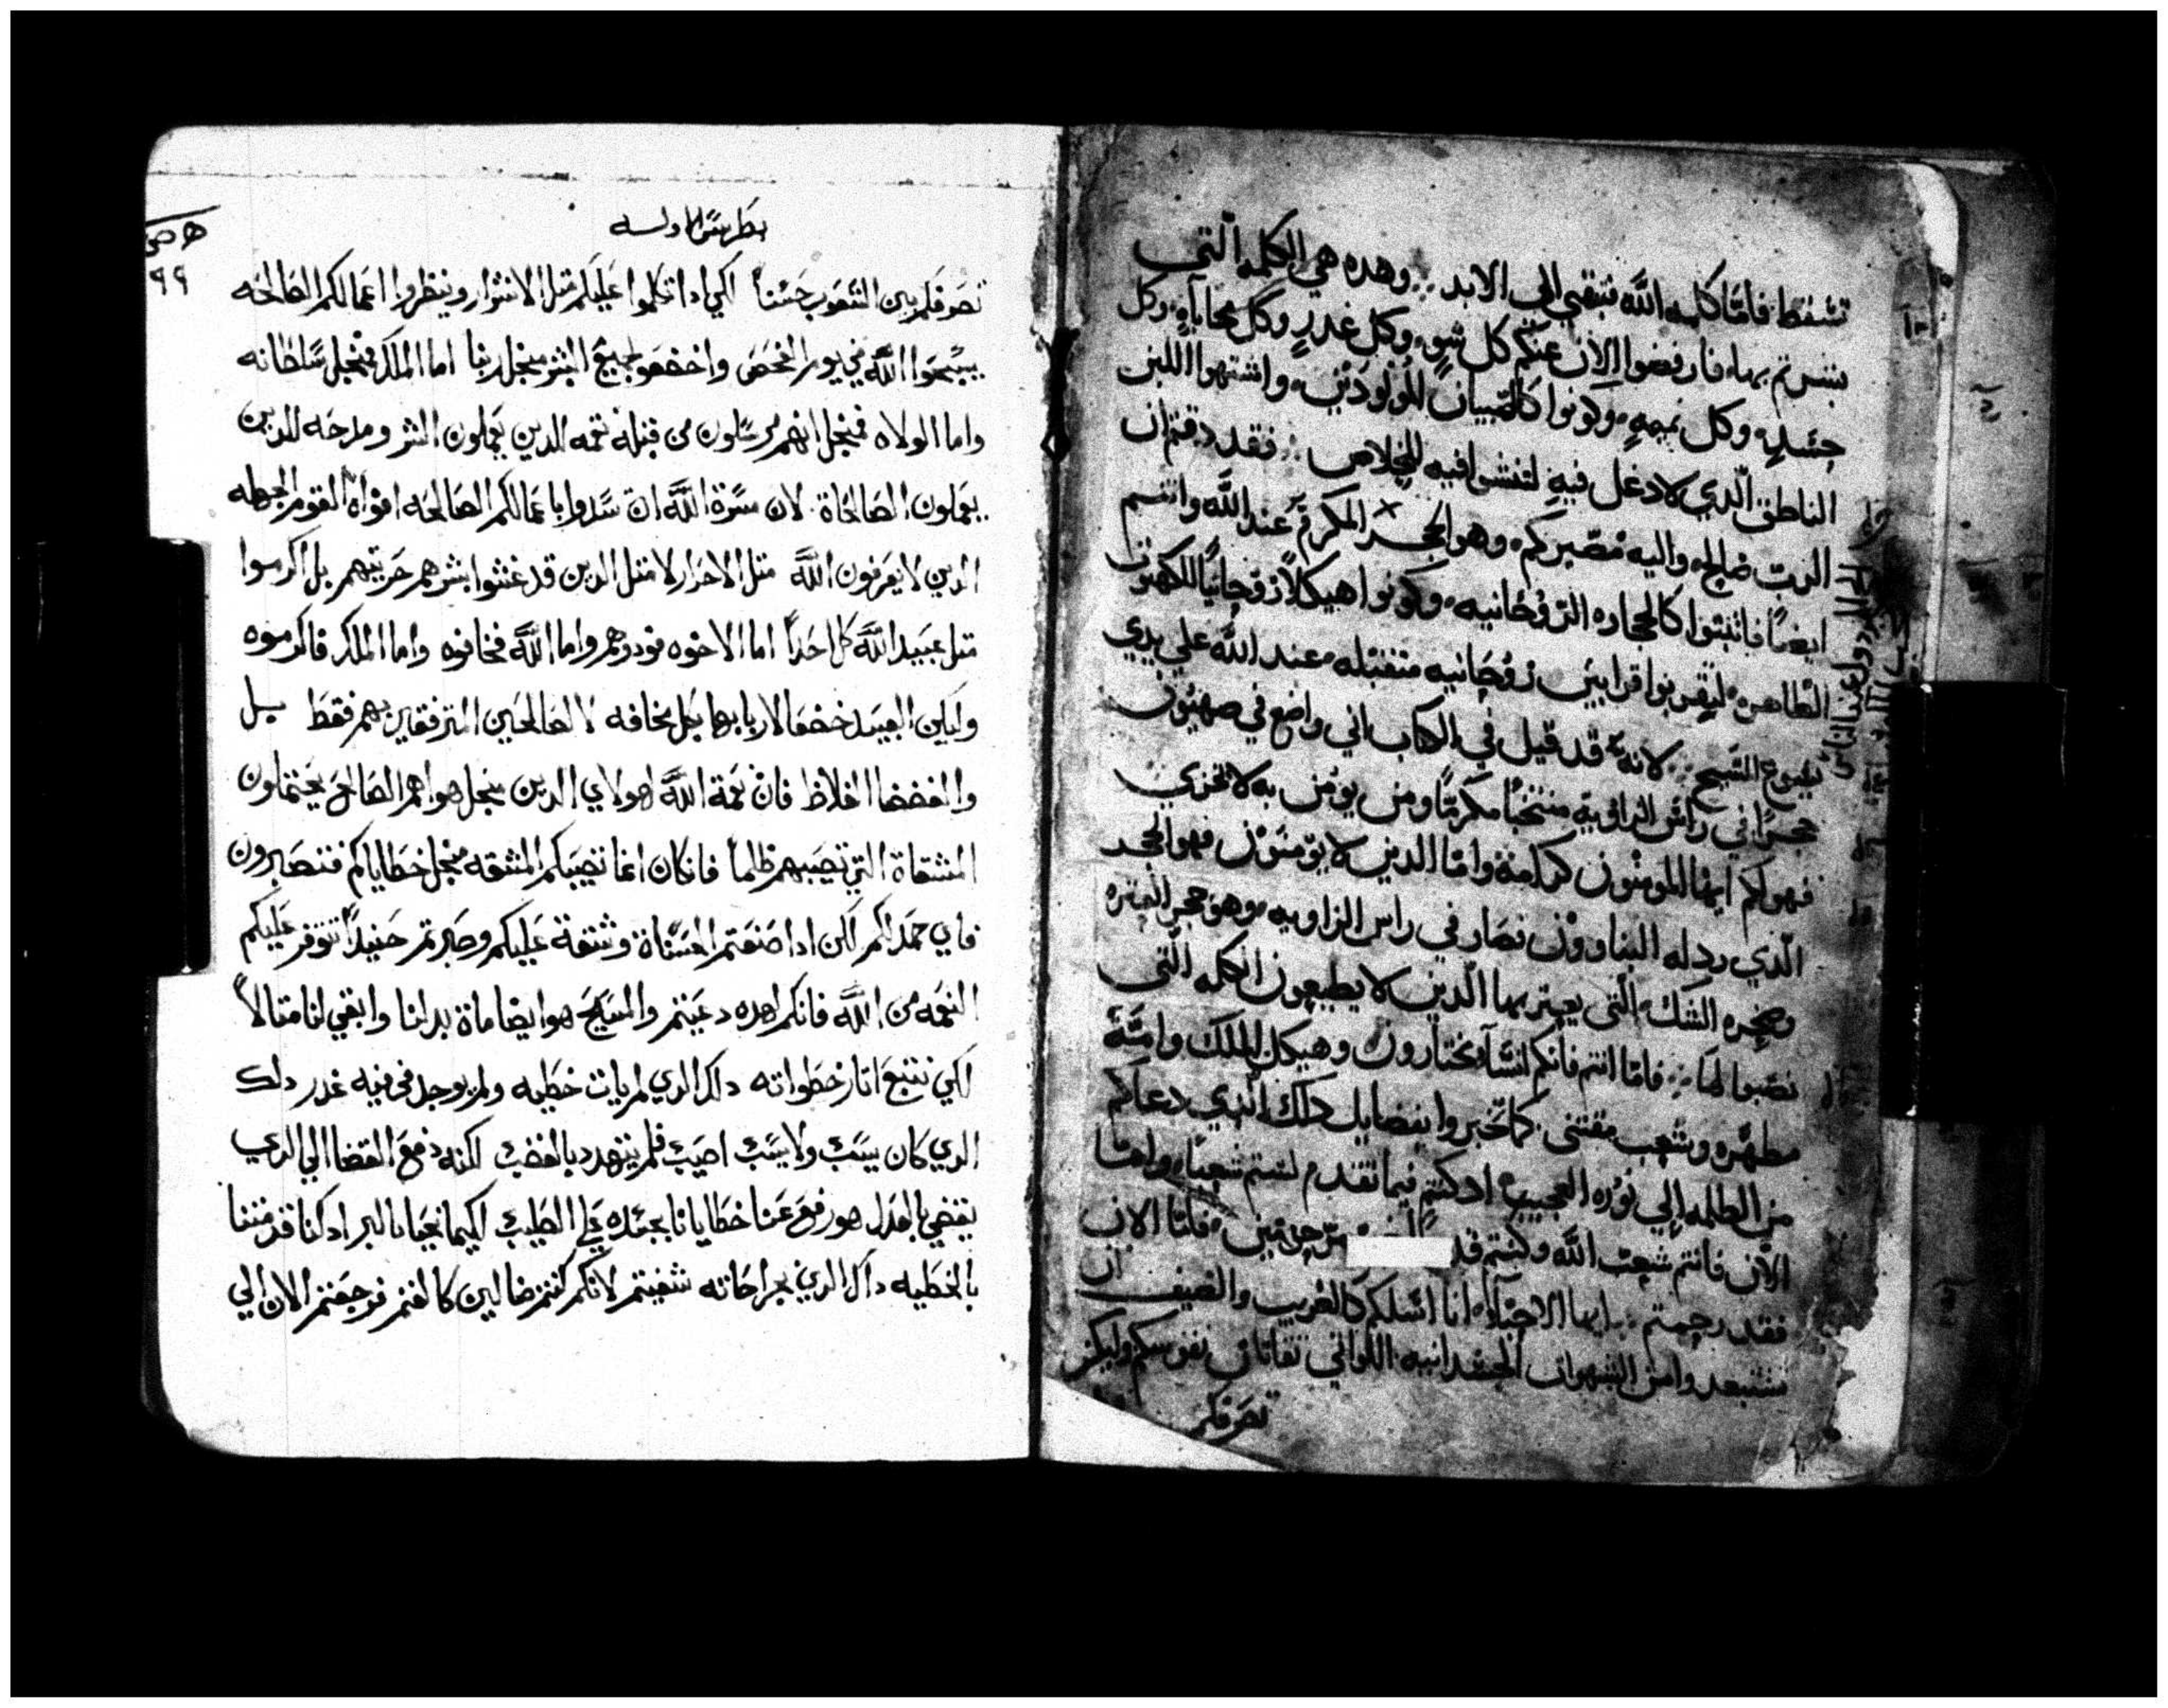 تسقط فاما كلمه الله فتبقي الي الابد وهده هي الكلمه التي
بشرتم بها فارفضوا الان عنكم كل شو وكل غدر وكل محاباه وكل
حسد وكل نميمه وكونوا كالصبيان المولودين واشتهوا اللبن
الناطق الدي لا دغل فيه لتنشوا فيه للخلاص فقد دقتم ان
الرب صالح واليه مصيركم وهو الحجر المكرم عند الله وانتم
ايضا فاتبنوا كالحجاره الروحانيه وكونوا هيكلا روحانيا للكهنوت
الطاهره ليقربوا قرابين روحانيه متقبله عند الله علي يدي
يسوع المسيح لانه قد قيل في الكتاب اني واضع في صهيون
حجرا في راس الزاويه منتخبا مكرما ومن يومن به لا يخزي
فهو لكم ايها المومنون كرامه واما الدين لا يومنون فهو الحجر
الدي ردله البناوون فصار في راس الزاويه وهو حجر العتره
وصخره الشك التي يعتر بها الدين لا يطيعون الكلمه التي
نصبوا لها فاما انتم فانكم انشا مختارون وهيكل للملك وامة
مطهره وشعب مقتني كما تخبروا بفضايل داك الدي دعاكم
من الظلمه الي نوره العجيب ادكنتم فيما تقدم لستم شعبا واما
الان فانتم شعب الله وكنتم قد مرحومين فاما الان
فقد رحمتم ايها الاحبا انا اسلكم كالغريب والضيف ان
تستبعدوا من الشهوات الجسدانيه اللواتي تقاتلن نفوسكم وليكن
تصرفكم
بطرس الاوله
٩٩
تصرفكم بين الشعوب حسنا لكي ادا تكلموا عليكم متل الاشرار وينظروا اعمالكم الصالحه
يسبحوا الله في يوم الفحص واخضعو لجميع البشر منجل ربنا اما الملك فمنجل سلطانه
واما الولاه فمنجل انهم مرسلون من قبله نقمه للدين يعملون الشر ومدحه للدين
يعملون الصالحاة لان مسرة الله ان تسدوا باعمالكم الصالحه افواه القوم الجهله
الدين لا يعرفون الله متل الاحرار لا متل الدين قد غشوا بشرهم حريتهم بل اكرموا
متل عبيد الله كل احدا اما الاخوه فودوهم واما الله فخافوه واما الملك فاكرموه
وليكن العبيد خضعا لاربابها بكل مخافه لا الصالحين المترفقين بهم فقط بل
والفضضا الغلاظ فان نعمة الله لهولاي الدين منجل هواهم الصالح يحتملون
المشقاة التي تصيبهم ظلما فان كان انما تصيبكم المشقه منجل خطاياكم فتصبرون
فاي حمد لكم لكن ادا صنعتم الحسناة وشقة عليكم وصبرتم حنيدا تتوفر عليكم
النعمه من الله فانكم لهده دعيتم والمسيح هو ايضا ماة بدلنا وابقي لنا متالا
لكي نتبع اتار خطواته داك الدي لم يات خطيه ولم يوجد في فيه غدر دلك
الدي كان يسب ولا يسب اصيب فلم يتهدد بالغضب لكنه دفع القضا الي الدي
يقضي بالعدل هو رفع عنا خطايانا بجسده علي الصليب لكيما نحيا بالبر ادكنا قد متنا
بالخطيه داك الدي بجراحاته شفيتم لانكم كنتم ضالين كالغنم فرجعتم الان الي